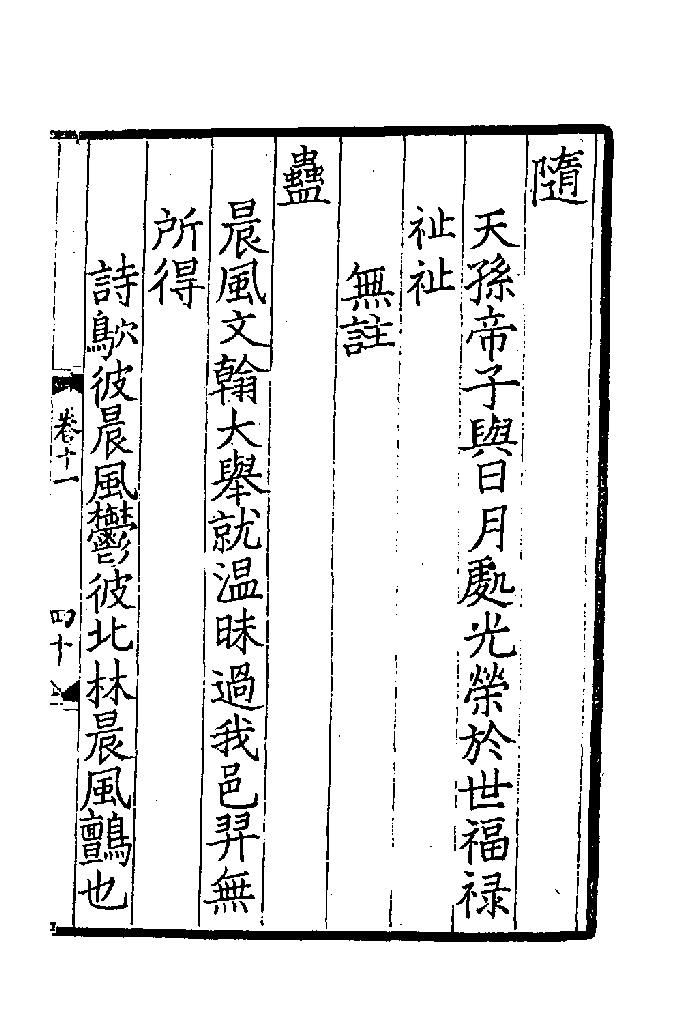 隨
天孫帝子與日月處光榮於世福禄
祉祉
無註
蠱
晨風文翰大舉就温昧過我邑羿無
所得
詩鴥彼晨風鬱彼北林晨風鸇也
卷十一
四十